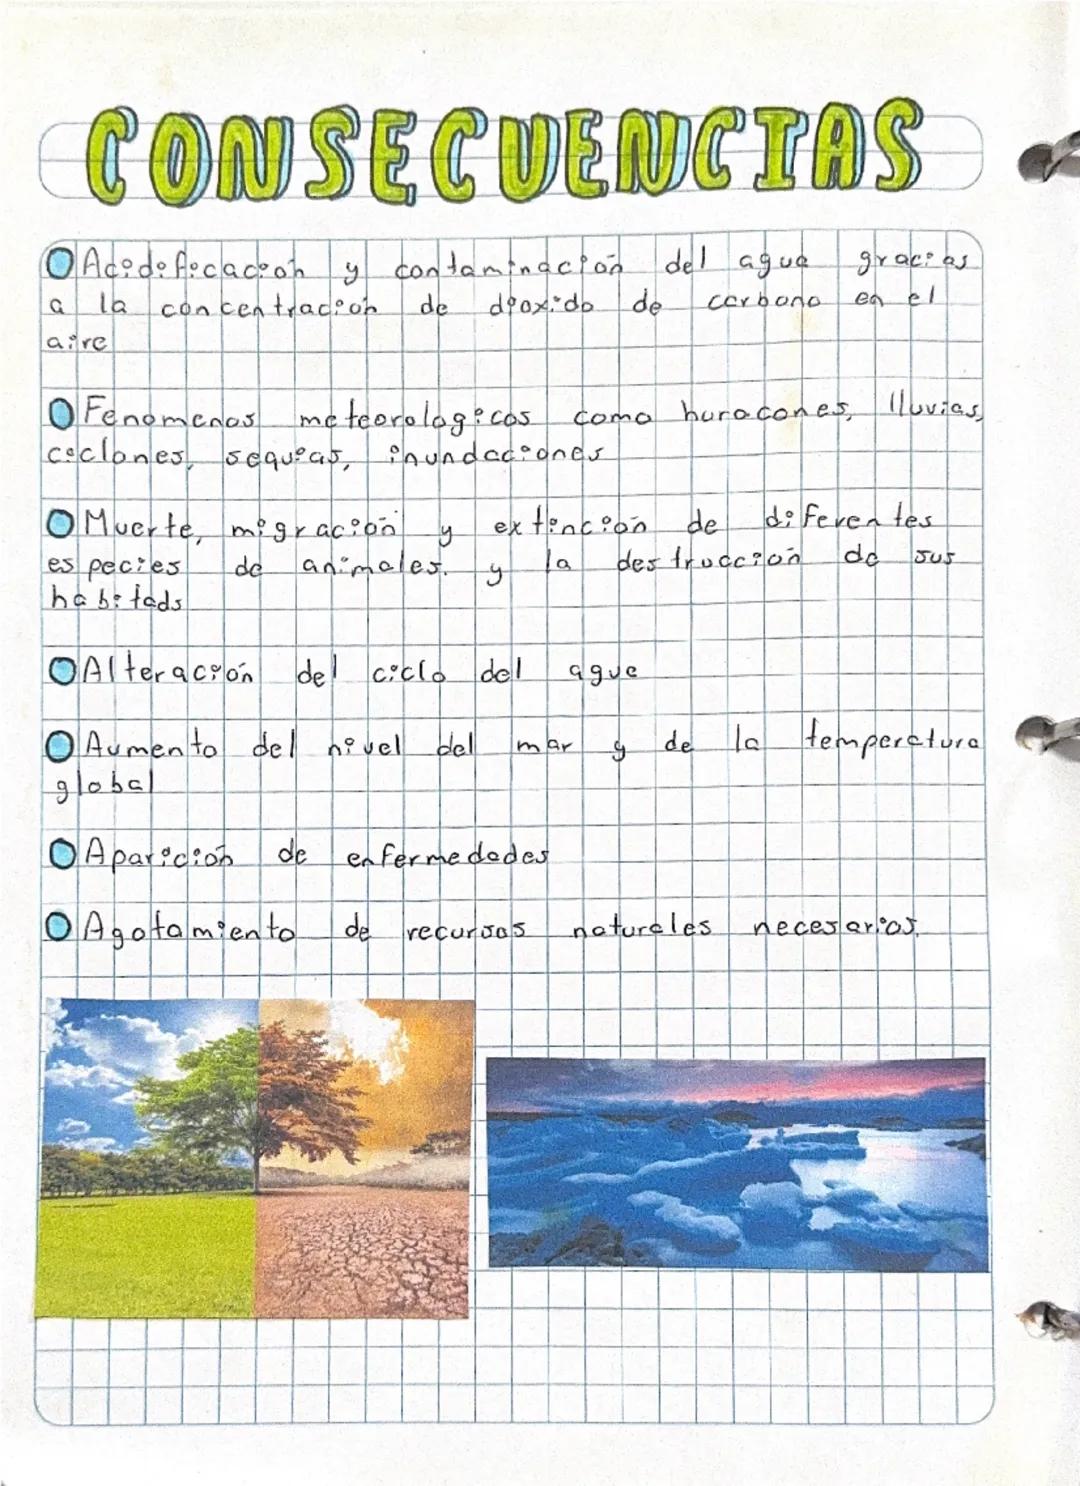 CONSECUENCIAS
Acidificación y contaminación del agua gracias
a la concentración de dioxido de carbono en el
aire
Fenomenos meteorologicos como huracanes, lluvias,
ciclones, sequias, inundaciones
Muerte, migración y extinción de diferentes
especies de animales. y la destrucción de sus
habitads
Alteración del ciclo del agua
Aumento del nivel del mar y de la temperatura
global
Aparición de enfermedades
Agotamiento de recursos naturales necesarios.